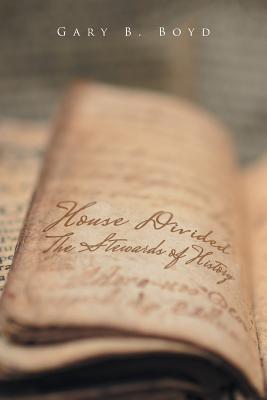 Gary B. Boyd
House Divided
The Stewards of History